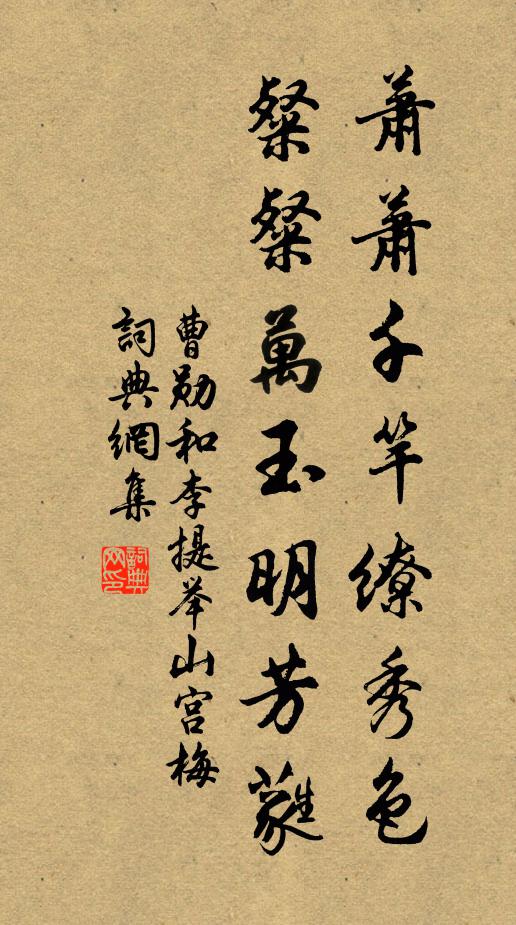 蕭蕭千竿繚秀色
粲粲萬玉明芳蕤
曹勛和李提举山宫梅
詞典網集
詞典网印